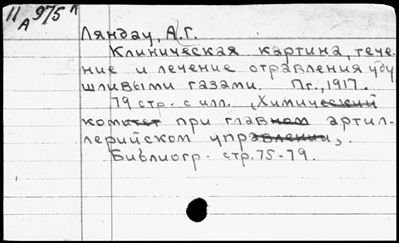 11 975 л
А
Ляндау, А.Г.
Клиническая картина, тече-
ние и лечение отравления уду
шливыми газами. Пг., 1917.
79 стр. с илл. (Химический
комитет при главном артил-
лерийском управлении).
Библиогр. стр. 75-79.